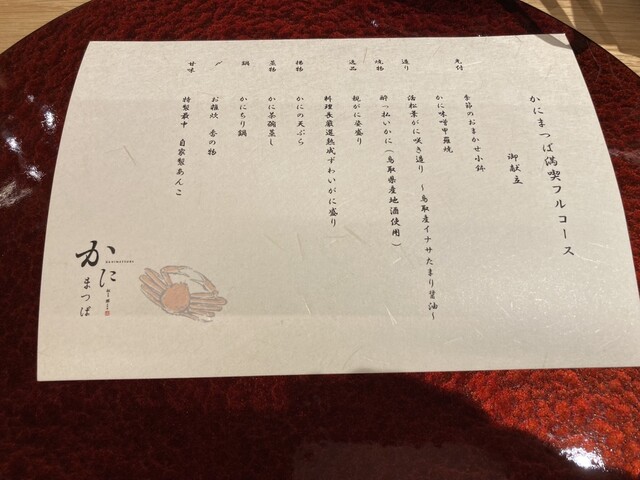 かにまつば満喫フルコース
御献立
先付
季節のおまかせ小鉢
かに味噌甲羅焼
造り
活松葉がに咲き造り ～鳥取産イナサたまり醤油～
焼物
酔っ払いかに(鳥取県産地酒使用)
逸品
親がに姿盛り
料理長厳選熟成ずわいがに盛り
揚物
かにの天ぷら
蒸物
かに茶碗蒸し
鍋
かにちり鍋
〆
お雑炊 香の物
甘味
特製最中 自家製あんこ
かに
まつば